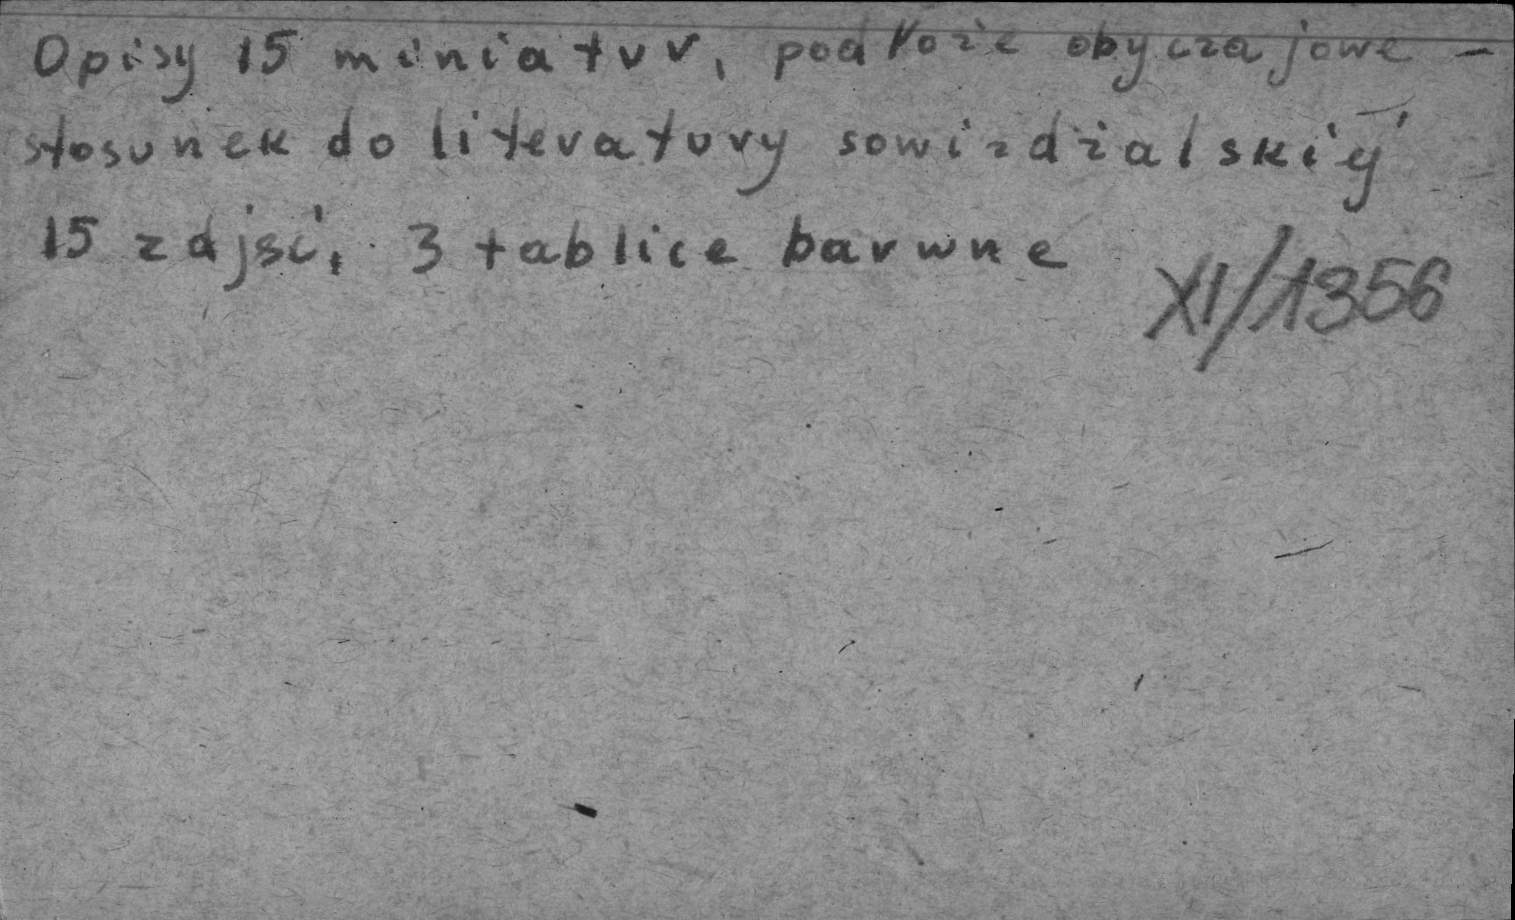 Opisy 15 miniatur, podłoże obyczajowe –
stosunek do literatury sowizdzalskiej
15 zdjęć, 3 tablice barwne
XI/1356